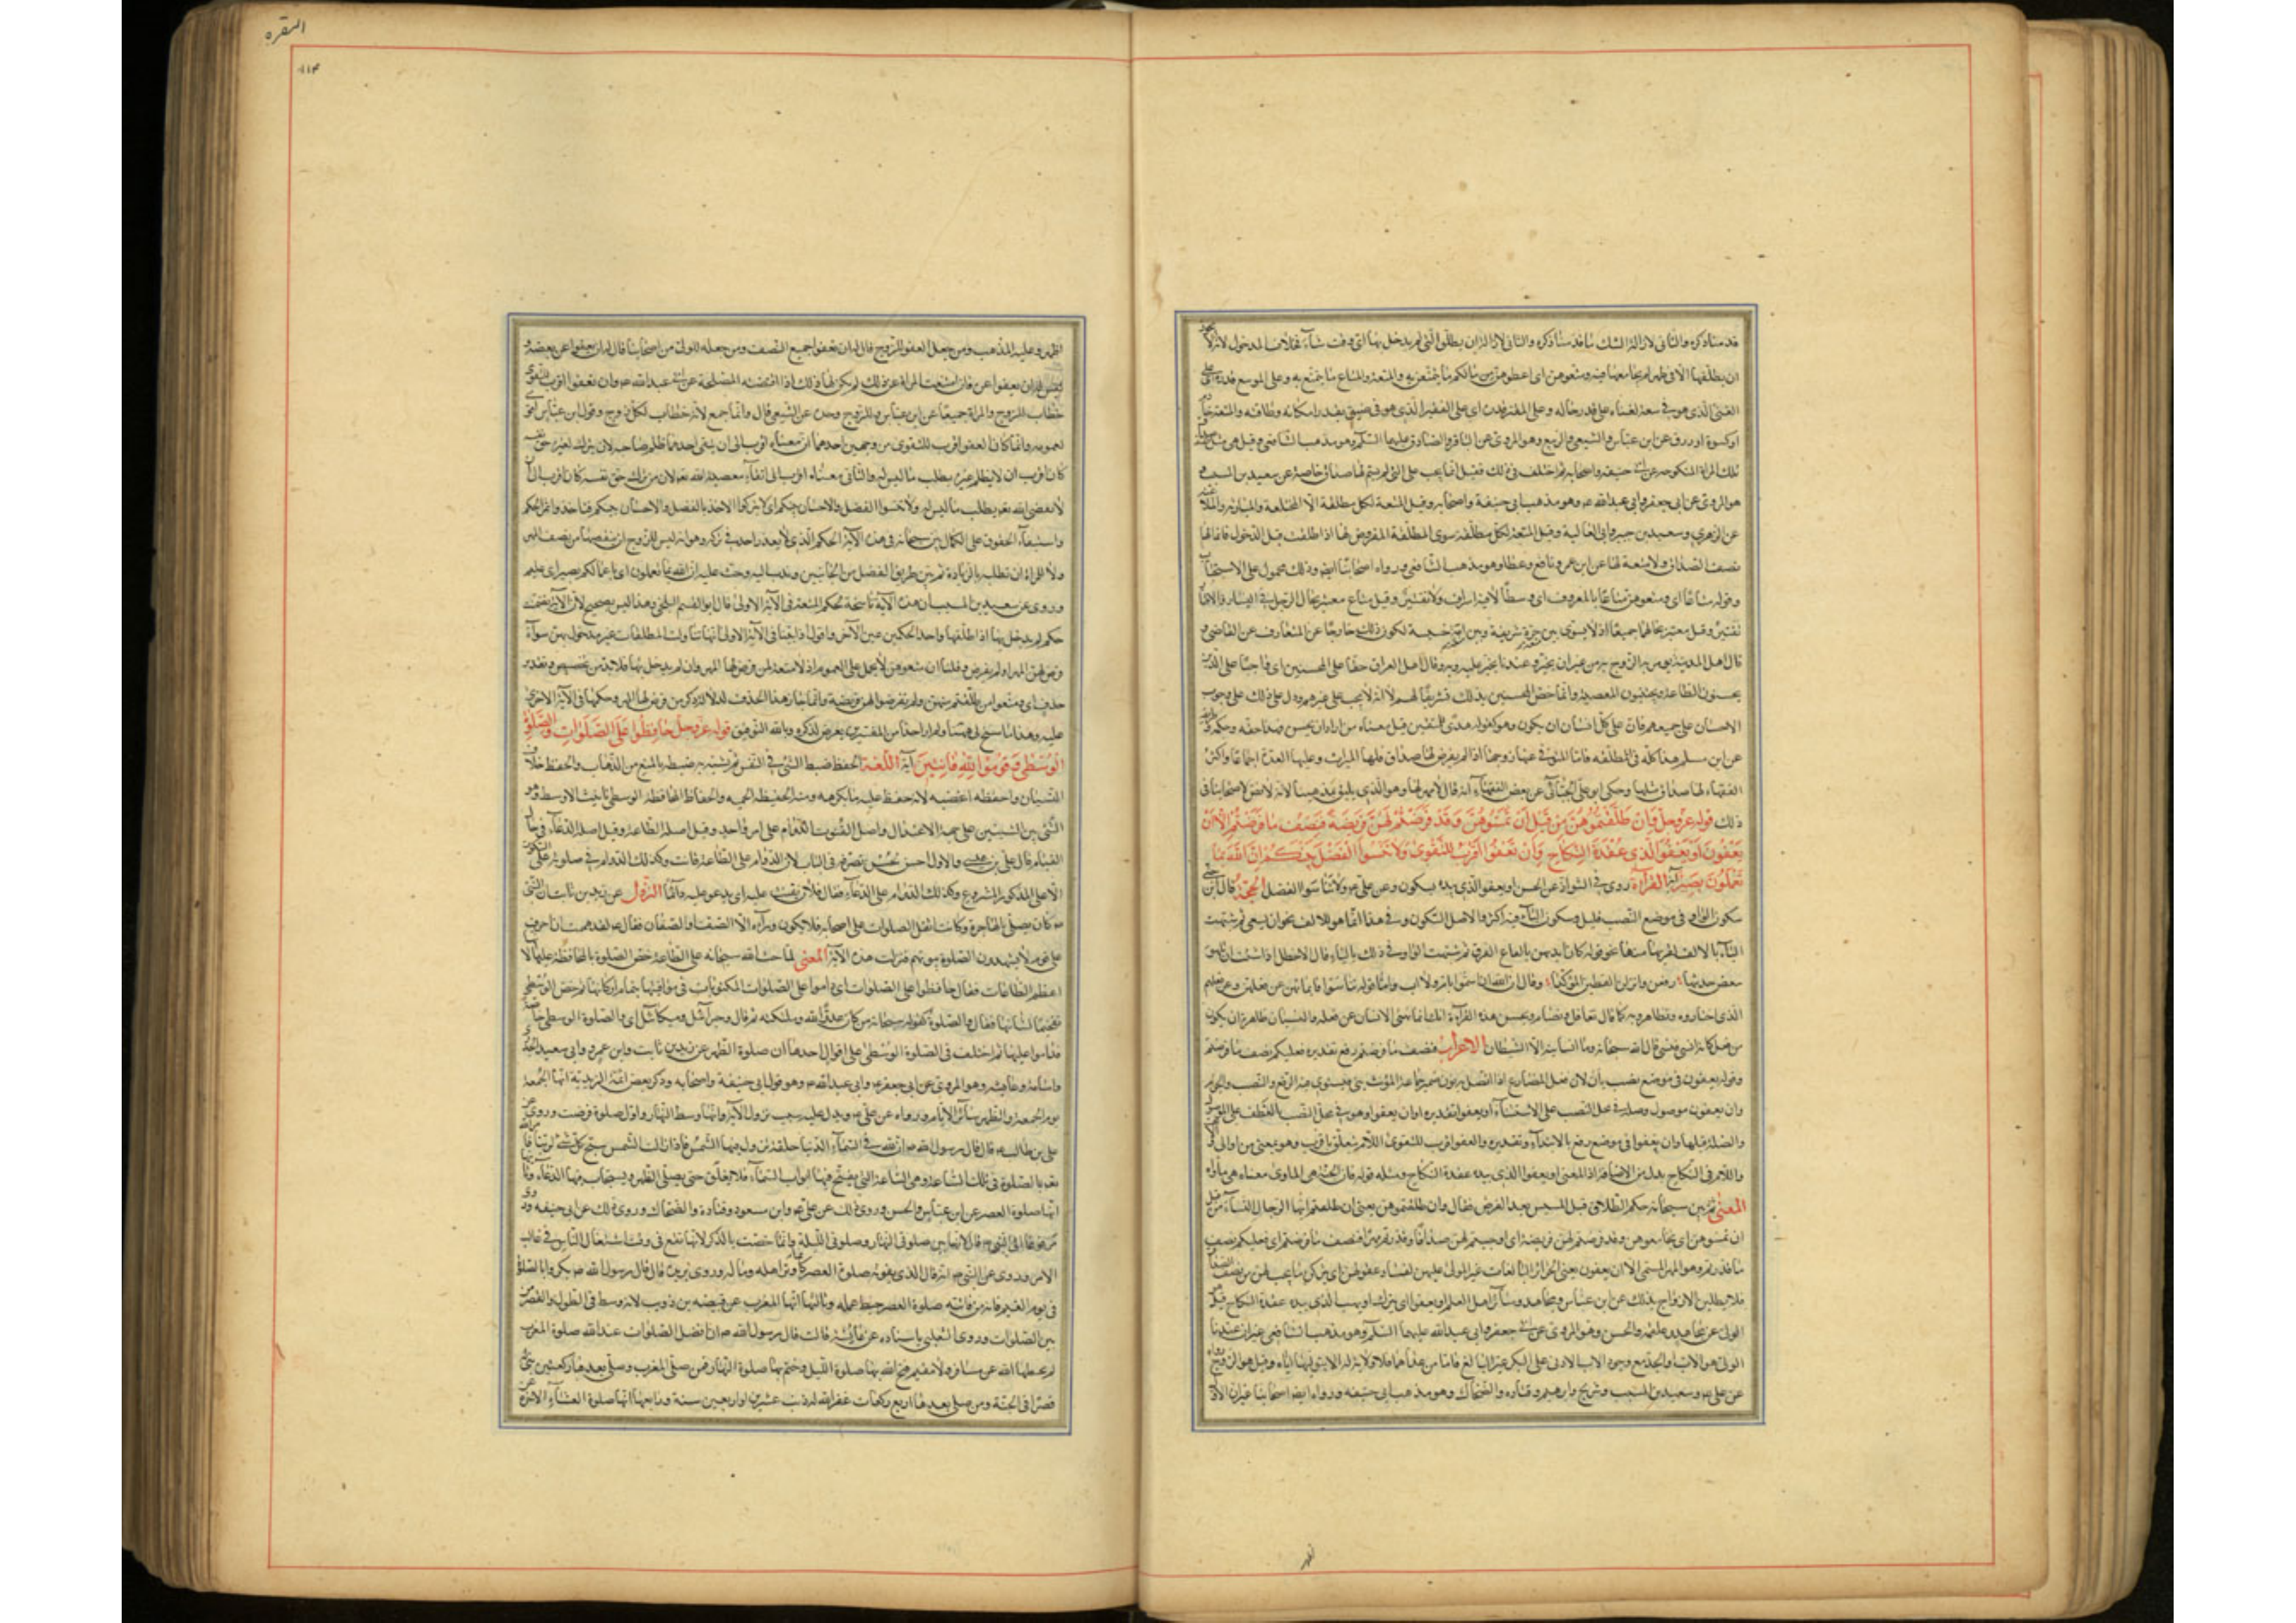 قد مثنا ذكره والثانى لازالة الشك
ان يطلقها الا فى طهر لم يجامعها فيه ومتعوهن اى اعطوهن من مالكم ما يتمتعن به والمتعة والمتاع ما يتمتع به وعلى الموسع قدره اى على
الغنى الذى هو فى سعة لغناه على قدر حاله وعلى المقتر قدره اى على الفقير الذى هو فى ضيق بقدر امكانه وطاقته والمتعة خادم
او كسوة او ورق عن ابن عباس والشعبى والربيع وهو المروى عن الباقر والصادق عليهما السلم وهو مذهب الشافعى وقيل هى مثل نصف صداق
تلك المراة المنكوحة عن ابى حنيفه واصحابه ثم اختلف فى ذلك فقيل انما يجب على التى لم يسم لها صداق خاصة عن سعيد بن المسيب و
هو المروى عن ابى جعفر وابى عبدالله ع وهو مذهب ابى حنيفة واصحابه وقيل المتعة لكل مطلقة الا المختلعة والمباریة والملاعنة
عن الزهرى وسعيد بن جبير وابى العالية وقيل المتعة لكل مطلقة سوى المطلقة المفروض لها اذا طلقت قبل الدخول فانما لها
نصف الصداق ولا متعة لها عن ابن عمر ونافع وعطا وهو مذهب الشافعى ورواه اصحابنا ايض وذلك محمول على الاستحباب
وقوله متاعا اى ومتعوهن متاعا بالمعروف اى وسطا لا فيه اسراف ولا تقتير وقيل متاع معتبر بحال الرجل فى اليسار والاقتار
تقتير وقيل معتبر بحالهما جميعا اذ لا يسوى بين حرة شريفة وبين امة خسيسة لكون ذلك خارجا عن المتعارف عن القاضى و
قال اهل المدينة يؤمر به الزوج به من غير ان يجبر وعندنا يجبر عليه وبه قال اهل العراق حقا على المحسنين اى واجبا على الذين
يحسنون الطاعة ويجتنبون المعصية وانما خص المحسنين بذلك تشريفا لهم لا انه لا يجب على غيرهم ودل ذلك على وجوب
الاحسان على جميعهم فان على كل انسان ان يكون وهو كقوله هدى للمتقين قيل معناه من اراد ان يحسن
عن ابى مسلم هذا كله فى المطلقه فاما المتوفى عنها زوجها اذا لم يفرض لها صداق فلها الميراث وعليها العدة اجماعا واكثر
الفقهاء لها صداق مثلها وحكى ابو على الجبائى عن بعض الفقهاء انه قال لا مهر لها وهو الذى يليق بمذهبنا لانه لا نص لاصحابنا فى
ذلك قوله عز وجل فان طلقتموهن من قبل ان تمسوهن وقد فرضتم لهن فريضة فنصف ما فرضتم الا ان
يعفون او يعفوا الذى بيده عقدة النكاح وان تعفوا اقرب للتقوى ولا تنسوا الفضل بينكم ان الله بما
تعملون بصير اية القراءة روى فى الشواذ عن الحسن او يعفو الذى بيده بسكون وعن على ع ولا تناسوا الفضل الحجة قال ابن جنى
سكون الواو فى موضع النصب قليل وسكون الياء فيه اكثر والاصل السكون وفى هذا انما هو للالف
الياء بالالف
الذى اختاروه وتظاهروا به كما قال تعافل وتصام ويحسن هذه القراءة انك انما تنهى الانسان عن فعله والنسيان ظاهره ان يكون
من فعل كانه انسى فنسى قال الله سبحانه وما انسانيه الا الشيطان الاعراب فنصف ما فرضتم رفع تقديره فعليكم نصف ما فرضتم
وقوله يعفون فى موضع نصب بأن لان فعل المضارع اذا اتصل به نون ضمير جماعة المؤنث بنى فيستوى فيه الرفع والنصب والجزم
وان يعفون موصول وصلة فى محل النصب على الاستثناء او يعفوا تقديره او ان يعفو وهو فى محل النصب بالعطف على الموصول
والصلة قبلها وان تعفوا فى موضع رفع بالابتداء وتقديره والعفو اقرب للتقوى اللام تتعلق باقرب وهو بمعنى من او الى
واللام فى النكاح بدل من الاضافة اذ المعنى او يعفوا الذى بيده عقدة النكاح ومثله قوله فان الجنة هى الماوى معناه هى ماواه
المعنى ثم بين سبحانه حكم الطلاق قبل المسيس بعد الفرض فقال وان طلقتموهن يعنى ان طلقتم ايها الرجال النساء من قبل
ان تمسوهن اى تجامعوهن وقد فرضتم لهن فريضة اى اوجبتم لهن صداقا وقدرتم مهرا فنصف ما فرضتم اى فعليكم نصف
ما قدرتم وهو المهر المسمى الا ان يعفون يعنى الحرائر البالغات غير المولى عليهن
فلا يطلبن الازواج بذلك عن ابن عباس ومجاهد وسائر اهل العلم او يعفوا اى يترك او يهب الذى بيده عقدة النكاح قيل هو
الولى عن مجاهد وعلقمه والحسن وهو المروى عن ابى جعفر وابى عبدالله عليهما السلم وهو مذهب الشافعى غير ان عندنا
الولى هو الاب والجد مع وجود الاب الادنى على البكر غير البالغ فاما من عداهما فلا ولاية له الا بتوليتها اياه وقيل هو الزوج رواه
عن على ع وسعيد بن المسيب وشريح وابراهيم وقتاده والضحاك وهو مذهب ابى حنيفه ورواه ايض اصحابنا غير ان الاول
البقره
۱۱۴
اظهر وعليه المذهب ومن جعل العفو للزوج قال له ان يعفو جميع النصف ومن جعله للولى من اصحابنا قال له ان يعفوا عن بعضه و
ليس له ان يعفوا عن فان امتنعت المراة عن ذلك لم يكن لها ذلك اذا اقتضته المصلحة عن ابى عبدالله ع وان تعفوا اقرب للتقوى
خطاب للزوج والمراة جميعا عن ابن عباس وللزوج وحده عن الشعبى قال وانما جمع لانه خطاب لكل زوج وقول ابن عباس اقوى
لعمومه وانما كان العفو اقرب للتقوى من وجهين احدهما ان معناه اقرب الى ان يتقى احدهما ظلم صاحبه لان من ترك لغيره حق نفسه
كان اقرب ان لا يظلم غيره بطلب ما ليس له والثانى معناه اقرب الى اتقاء معصية الله تعه لان من ترك حق نفسه كان اقرب الى ان
لا يعصى الله تعه بطلب ما ليس له ولا تنسوا الفضل والاحسان بينكم اى لا تتركوا الاخذ بالفضل والاحسان بينكم فتاخذوا بمر الحكم
واستيفاء الحقوق على الكمال بين سبحانه فى هذه الآية الحكم الذى لا يعذر احد فى تركه وهو انه ليس للزوج ان ينقصها من نصف المهر
ولا للمراة ان تطلبه بالزيادة ثم بين طريق الفضل من الجانبين وندب اليه وحث عليه ان الله بما تعملون اى باعمالكم بصير اى عليم
وروى عن سعيد بن المسيب ان هذه الآية ناسخة لحكم المتعة فى الآية الاولى قال ابو القسم البلخى وهذا ليس بصحيح لان الآية تضمنت
حكم من لم يدخل بها اذا طلقها واحد الحكمين غير الآخر واقول اذا بقينا فى الآية الاولى انها تناولت المطلقات غير مدخول بهن سواء
فرض لهن المهر او لم يفرض وقلنا ان متعوهن لا يحمل على العموم اذ لا متعة لمن فرض لها المهر وان لم يدخل بها فلا بد من تخصيص وتقدير
حذف اى ومتعوا من طلقتم منهن ولم تفرضوا لهن فريضة وانما جاز هذا الحذف لدلالة ذكر من فرض لها المهر وحكمها فى الآية الاخرى
عليه وهذا ما سنح لى هيهنا ولم ار احدا من المفسرين تعرض لذكره وبالله التوفيق قوله عز وجل حافظوا على الصلوات والصلوة
الوسطى وقوموا لله قانتين اية اللغة الحفظ ضبط الشئ فى النفس ثم يشبه به ضبطه بالمنع من الذهاب والحفظ خلاف
النسيان واحفظه اغضبه لانه حفظ عليه ما يكرهه ومنه الحفيظة الحمية والحفاظ المحافظة الوسطى تانيث الاوسط وهو
الشئ بين الشيئين على جهة الاعتدال واصل القنوت الدوام على امر واحد وقيل اصله الطاعة وقيل اصله الدعاء فى حال
القيام قال على بن عيسى والاول احسن لحسن تصرفه فى الباب لان الدوام على الطاعة قانت وكذلك الداوم فى صلوته على السكوت
الا على الذكر المشروع وكذلك الدوام على الدعاء يقال فلان يقنت عليه اى يدعو عليه دائما النزول عن زيد بن ثابت ان النبى
ص كان يصلى بالهاجرة وكانت اثقل الصلوات على اصحابه فلا يكون وراءه الا الصف او الصفان فقال لقد هممت ان احرق
على قوم لا يشهدون الصلوة بيوتهم فنزلت هذه الآية المعنى لما حث الله سبحانه على الطاعة خص الصلوة بالمحافظة عليها لانها
اعظم الطاعات فقال حافظوا على الصلوات اى داوموا على الصلوات المكتوبات فى مواقيتها بتمام اركانها ثم خص الوسطى
تفخيما لشانها فقال والصلوة كقوله سبحانه من كان عدوا لله وملئكته ثم قال وجبرائيل وميكائيل اى والصلوة الوسطى خاصة
فداموا عليها ثم اختلف فى الصلوة الوسطى على اقوال احدها ان صلوة الظهر عن زيد بن ثابت وابن عمر وابى سعيد الخدرى
واسامة وعايشه وهو المروى عن ابى جعفر ع وابى عبدالله ع وهو قول ابى حنيفة واصحابه وذكر بعض ائمة الزيدية انها الجمعة
يوم الجمعة والظهر سائر الايام ورواه عن على ع ويدل عليه سبب نزول الآية وانها وسط النهار واول صلوة فرضت وروى عن
على بن ابى طالب ع قال قال رسول الله ص ان لله فى السماء الدنيا حلقة تزول فيها الشمس فاذا زالت الشمس سبح كل شئ لربنا فامر الله
تعه بالصلوة فى تلك الساعة وهى الساعة التى يفتح فيها ابواب السماء فلا تغلق حتى يصلى الظهر ويستجاب فيها الدعاء وثانيها
انها صلوة العصر عن ابن عباس والحسن وروى ذلك عن على ع وابن مسعود وقتادة والضحاك وروى ذلك عن ابى حنيفه وروى
مرفوعا الى النبى ص قال لانها بين صلوتى النهار وصلوتى الليل وانما خصت بالذكر لانها تقع فى وقت اشتغال الناس فى غالب
الامر وروى عن النبى ص انه قال الذى يفوته صلوة العصر كانما وتر اهله وماله وروى بريدة قال قال رسول الله ص بكروا بالصلوة
فى يوم الغيم فانه من فاتته صلوة العصر حبط عمله وثالثها انها المغرب عن قبيصه بن ذويب لانه وسط فى الطول والقصر من
بين الصلوات وروى الثعلبى باسناده عن عائشه قالت قال رسول الله ص ان افضل الصلوات عند الله صلوة المغرب
لم يحطها الله عن مسافر ولا مقيم فتح الله بها صلوة الليل وختم بها صلوة النهار فمن صلى المغرب وصلى بعدها ركعتين بنى الله
قصرا فى الجنة ومن صلى بعدها اربع ركعات غفر الله له ذنب عشرين او اربعين سنة ورابعها انها صلوة العشاء الآخرة عن